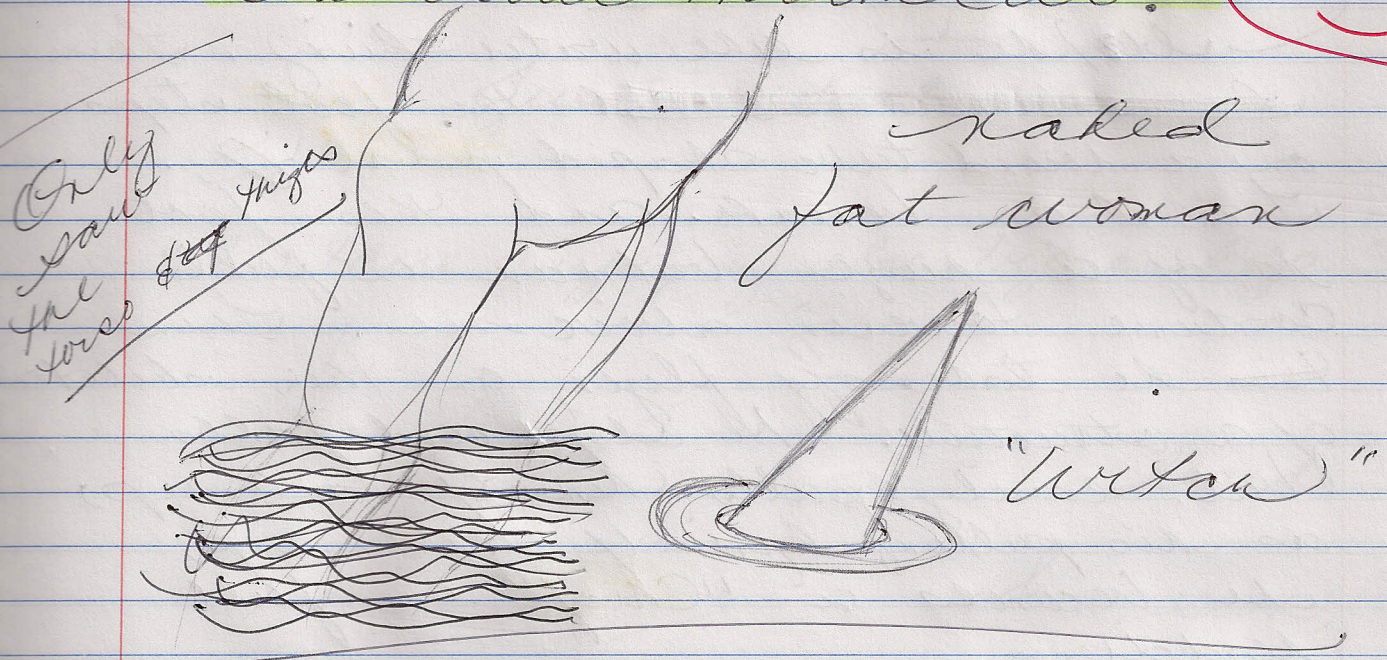 Only
saw
the
torso
thighs
naked
fat woman
"Witch"